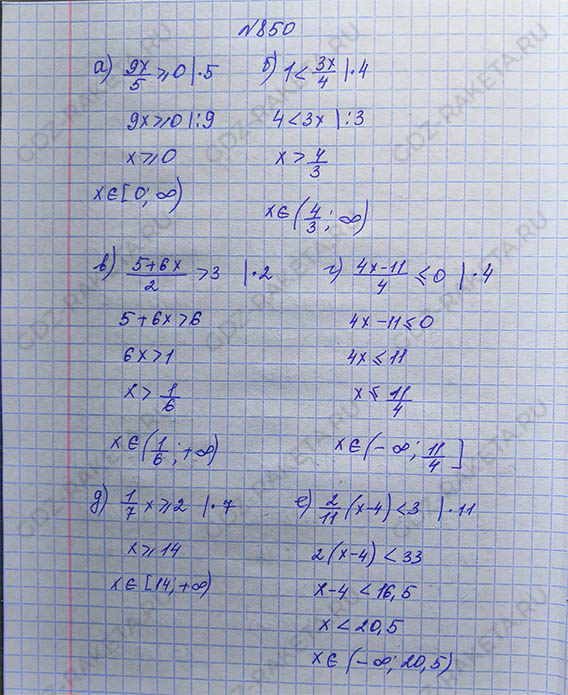 №850
а) 9x/5 ⩾ 0 |·5
9x ⩾ 0 |:9
x ⩾ 0
x∈[0; ∞)
б) 1 < 3x/4 |·4
4 < 3x |:3
x > 4/3
x∈(4/3; ∞)
в) (5+6x)/2 > 3 |·2
5+6x > 6
6x > 1
x > 1/6
x∈(1/6; +∞)
г) (4x-11)/4 ⩽ 0 |·4
4x-11 ⩽ 0
4x ⩽ 11
x ⩽ 11/4
x∈(-∞; 11/4]
д) 1/7 x ⩾ 2 |·7
x ⩾ 14
x∈[14; +∞)
е) 2/11 (x-4) < 3 |·11
2(x-4) < 33
x-4 < 16,5
x < 20,5
x∈(-∞; 20,5)
GDZ-RAKETA.RU